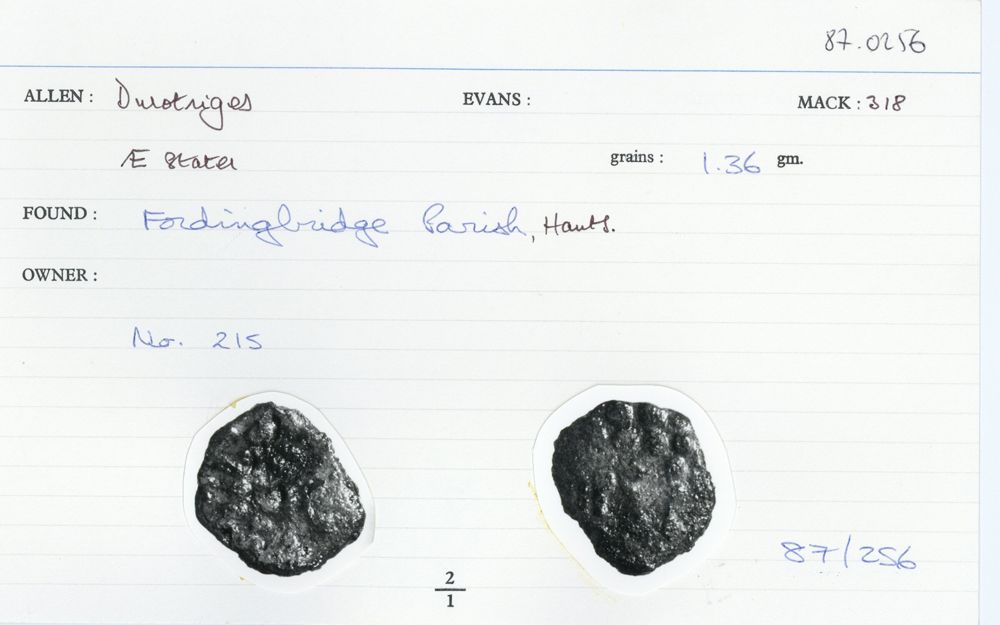 87.0256
ALLEN : Durotriges EVANS : MACK : 318
Æ Stater grains : 1.36 gm.
FOUND : Fordingbridge Parish, Hants.
OWNER :
No. 215
87/256
2
1